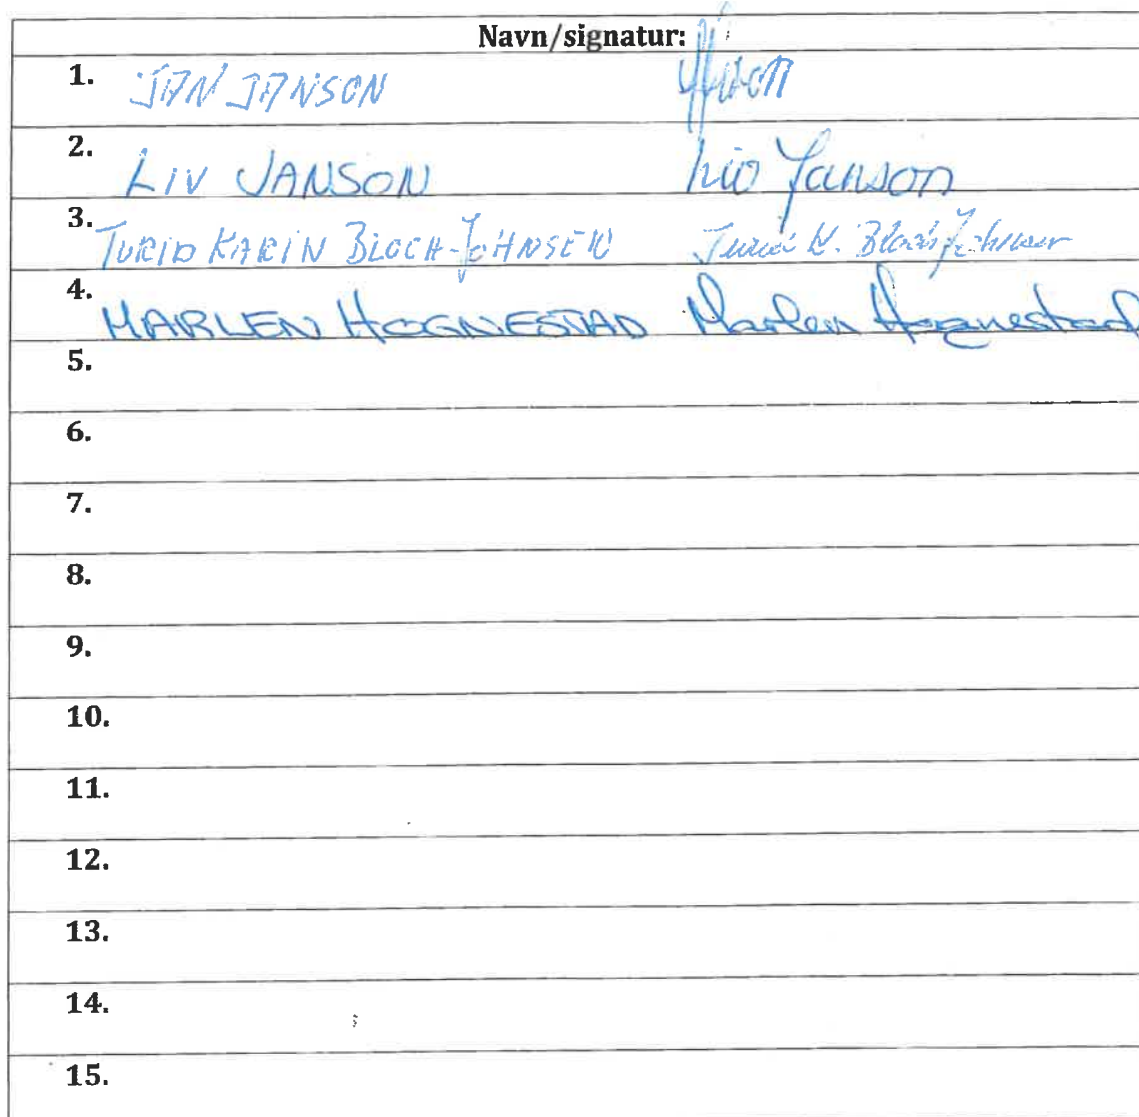 Navn/signatur:
1. JAN JANSON
2. LIV JANSON Liv Janson
3. TURID KARIN BLOCH-JOHNSEN Turid K. Bloch Johnsen
4. MARLEN HOGNESTAD Marlen Hognestad
5.
6.
7.
8.
9.
10.
11.
12.
13.
14.
15.